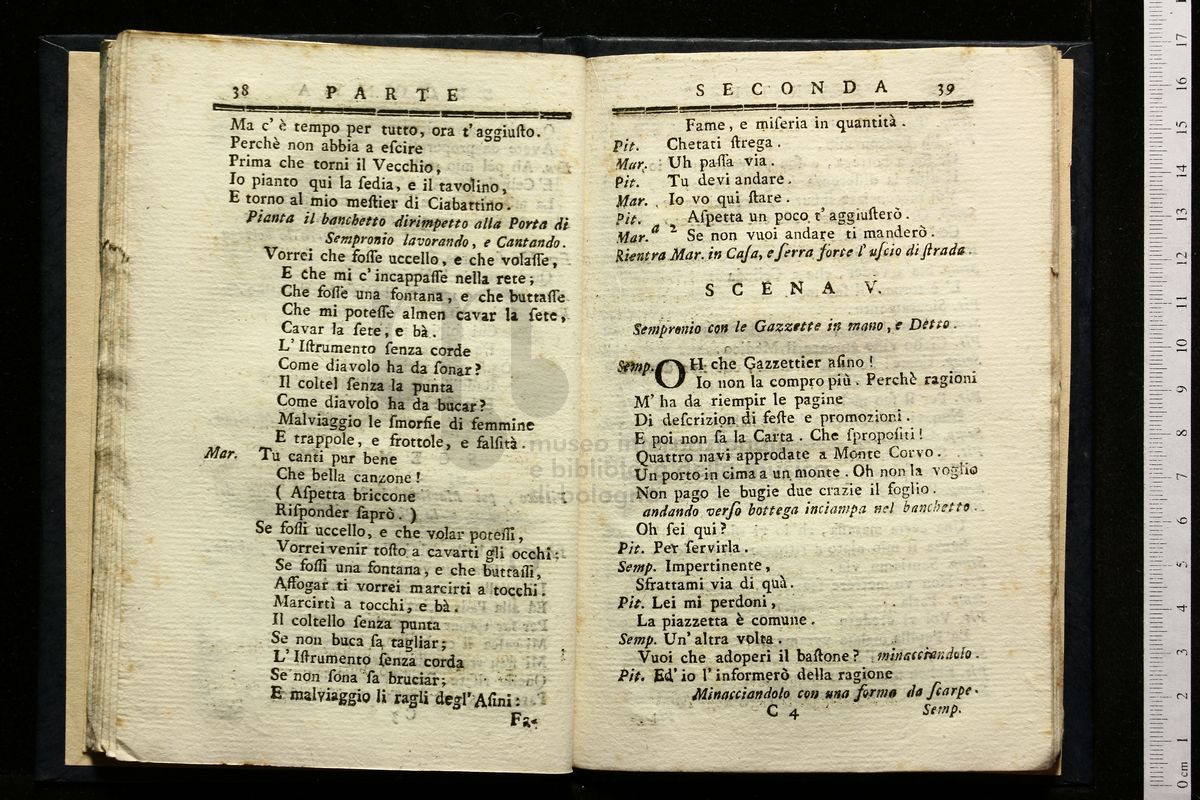 38 PARTE
Ma c' è tempo per tutto, ora t' aggiuſto.
Perchè non abbia a eſcire
Prima che torni il Vecchio,
Io pianto qui la ſedia, e il tavolino,
E torno al mio meſtier di Ciabattino.
Pianta il banchetto dirimpetto alla Porta di
Sempronio lavorando, e Cantando.
Vorrei che foſſe uccello, e che volaſſe,
E che mi c' incappaſſe nella rete;
Che foſſe una fontana, e che buttaſſe
Che mi poteſſe almen cavar la ſete,
Cavar la ſete, e bà.
L' Iſtrumento ſenza corde
Come diavolo ha da ſonar?
Il coltel ſenza la punta
Come diavolo ha da bucar?
Malviaggio le ſmorfie di femmine
E trappole, e frottole, e falſità.
Mar. Tu canti pur bene
Che bella canzone!
( Aſpetta briccone
Riſponder ſaprò. )
Se foſſi uccello, e che volar poteſſi,
Vorrei venir toſto a cavarti gli occhi;
Se foſſi una fontana, e che buttaſſi,
Affogar ti vorrei marcirti a tocchi.
Marcirti a tocchi, e bà.
Il coltello ſenza punta
Se non buca ſa tagliar;
L' Iſtrumento ſenza corda
Se non ſona ſa bruciar;
E malviaggio li ragli degl' Aſini:
Fa-
SECONDA 39
Fame, e miſeria in quantità.
Pit. Chetati ſtrega.
Mar. Uh paſſa via.
Pit. Tu devi andare.
Mar. Io vo qui ſtare.
Pit. Aſpetta un poco t' aggiuſterò.
Mar. a 2 Se non vuoi andare ti manderò.
Rientra Mar. in Caſa, e ſerra forte l' uſcio di ſtrada.
SCENA V.
Sempronio con le Gazzette in mano, e Detto.
Semp. OH che Gazzettier aſino!
Io non la compro più. Perchè ragioni
M' ha da riempir le pagine
Di deſcrizion di feſte e promozioni.
E poi non ſa la Carta. Che ſpropoſiti!
Quattro navi approdate a Monte Corvo.
Un porto in cima a un monte. Oh non la voglio
Non pago le bugie due crazie il foglio.
andando verſo bottega inciampa nel banchetto.
Oh ſei qui?
Pit. Per ſervirla.
Semp. Impertinente,
Sfrattami via di quà.
Pit. Lei mi perdoni,
La piazzetta è comune.
Semp. Un' altra volta.
Vuoi che adoperi il baſtone? minacciandolo.
Pit. Ed' io l' informerò della ragione
Minacciandolo con una forma da ſcarpe.
C 4 Semp.